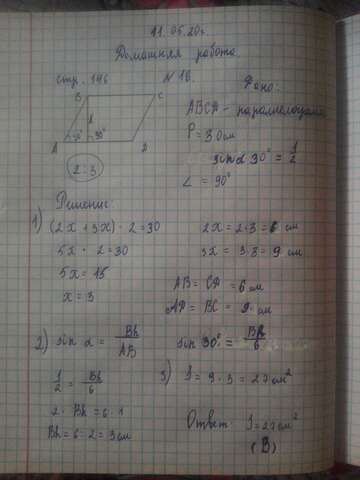 11.05.20г.
Домашняя работа
стр. 146 № 18
Дано:
ABCD - параллелограмм
P = 30 см
sin α 30° = 1/2
∠ = 90°
B C
h
30° 90°
A D
2:3
Решение:
1) (2x + 3x) · 2 = 30
5x · 2 = 30
5x = 15
x = 3
2x = 2·3 = 6 см
3x = 3·3 = 9 см
AB = CD = 6 см
AD = BC = 9 см
2) sin α = Bh/AB
sin 30° = Bh/6
1/2 = Bh/6
2 · Bh = 6 · 1
Bh = 6 : 2 = 3 см
3) S = 9 · 3 = 27 см²
Ответ: S = 27 см²
(B)